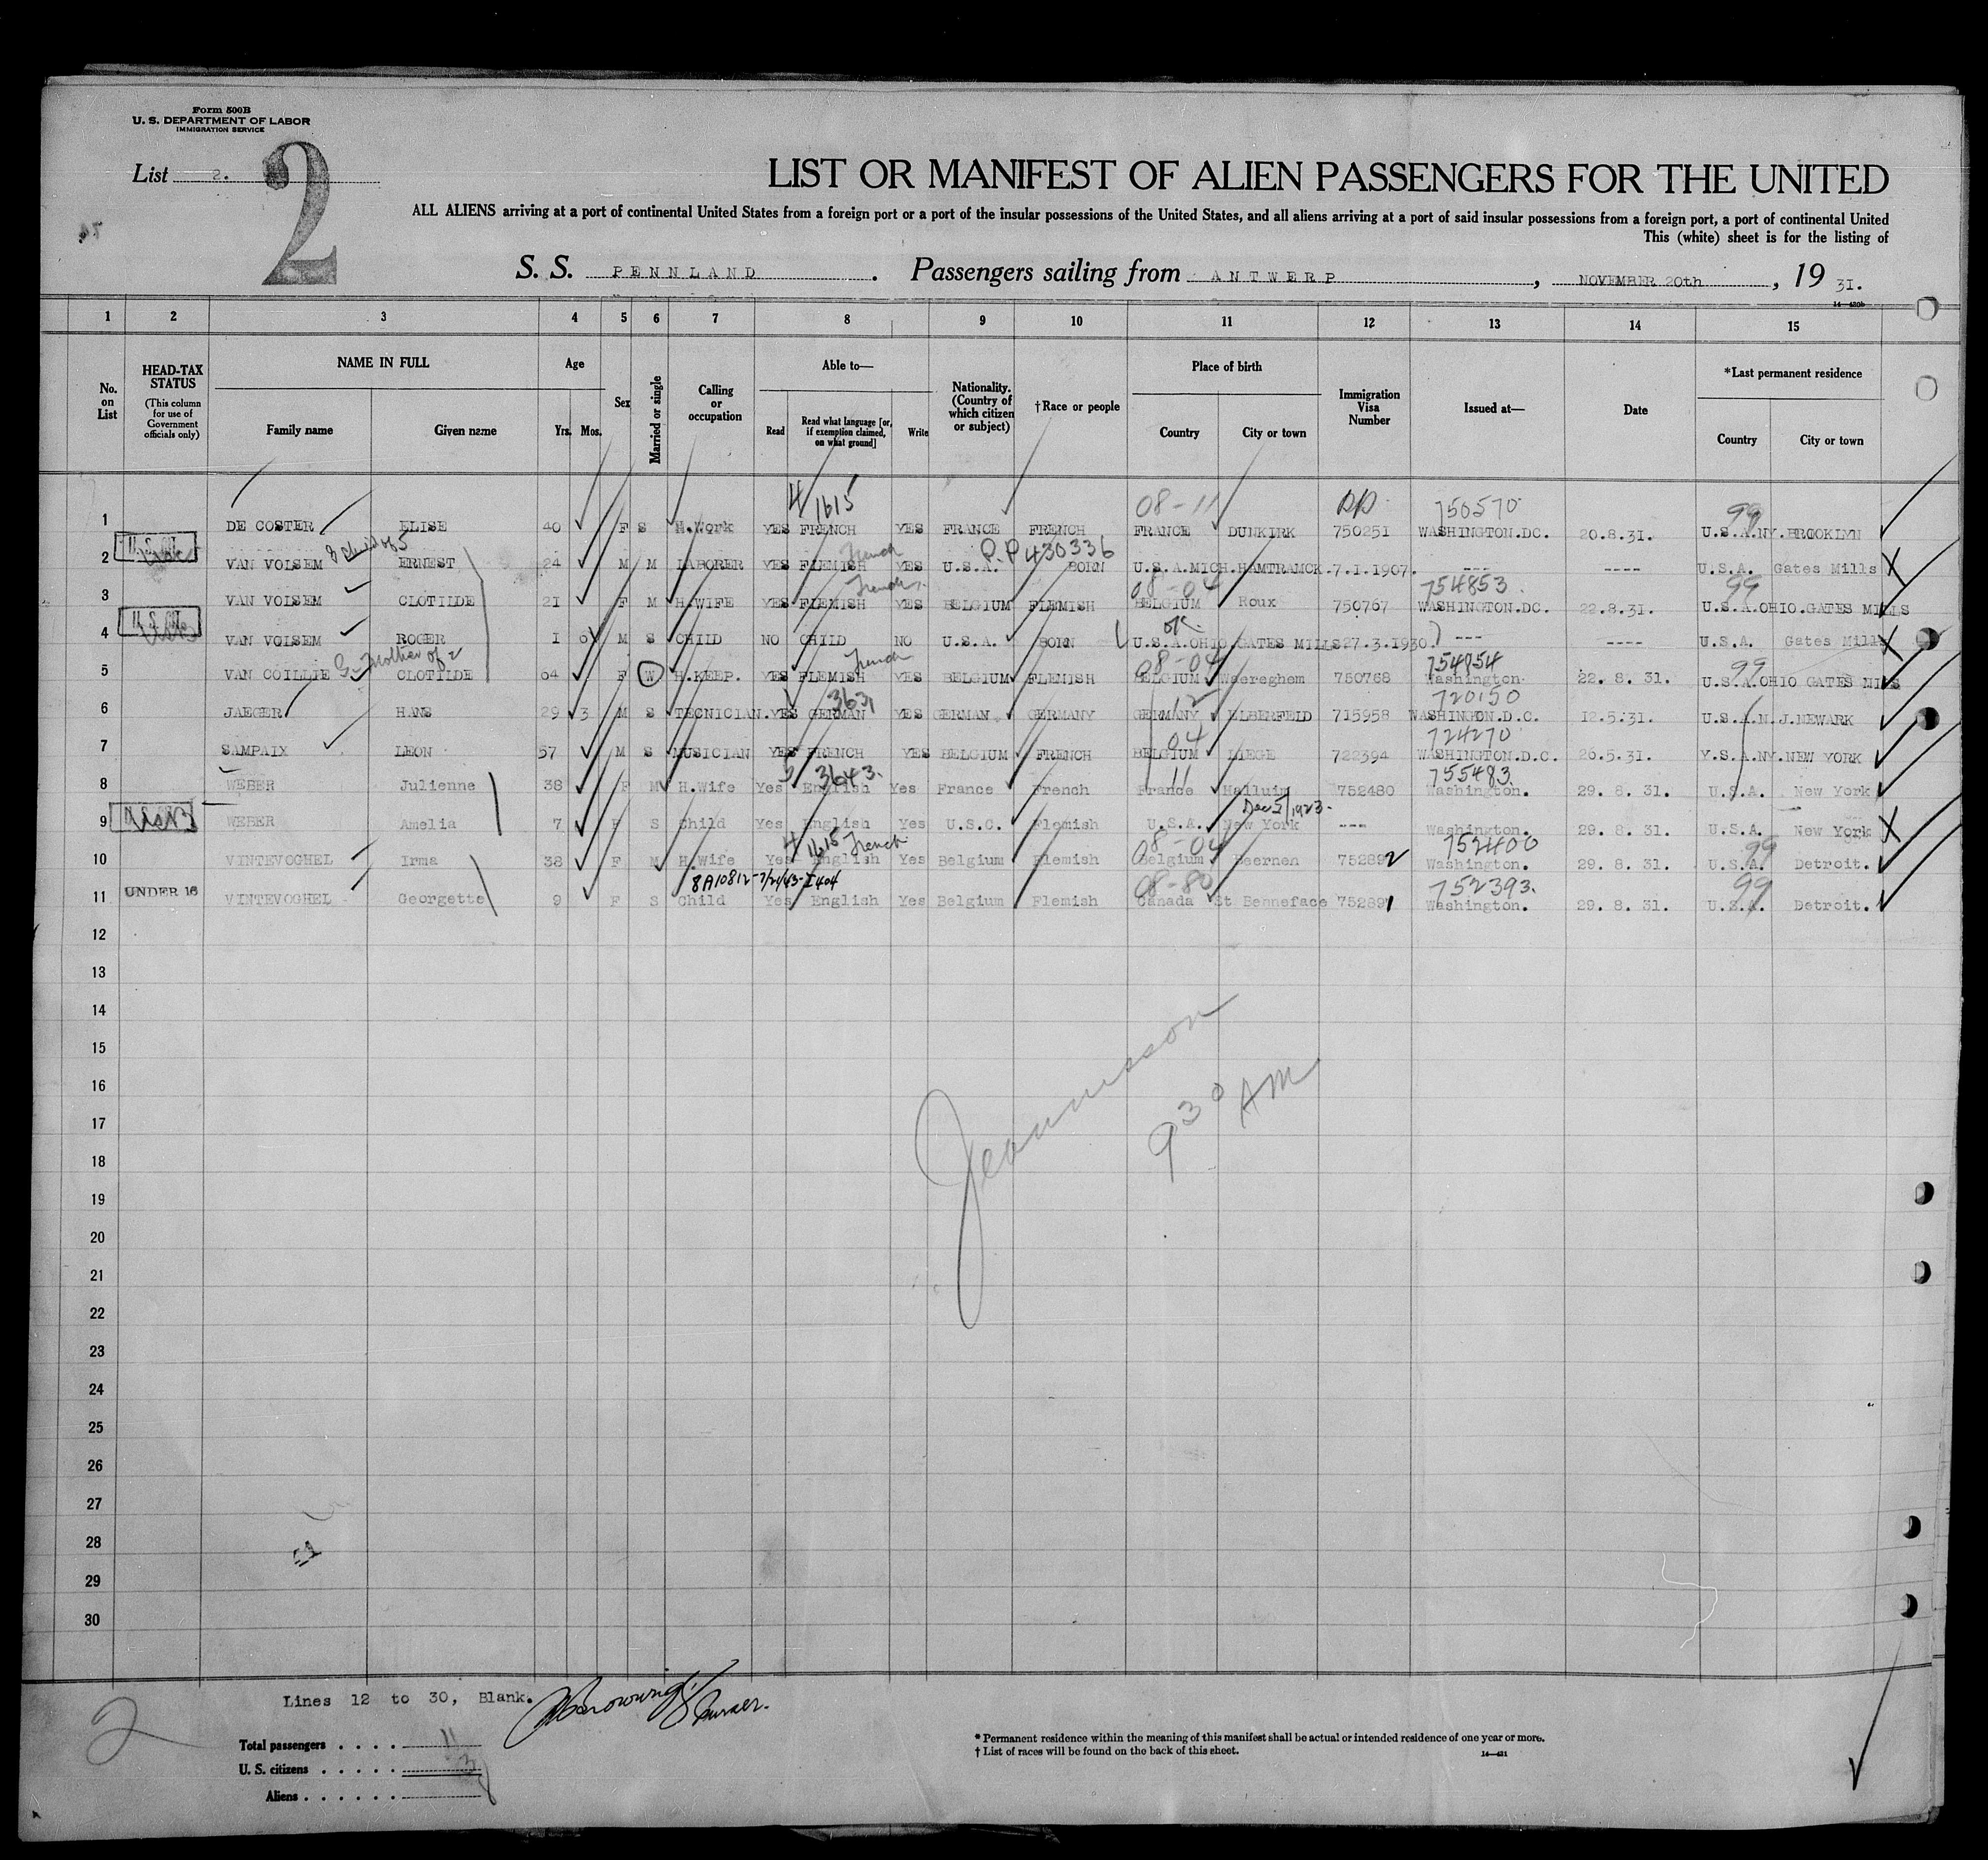 Form 500B
U. S. DEPARTMENT OF LABOR
IMMIGRATION SERVICE
List 2.
2
LIST OR MANIFEST OF ALIEN PASSENGERS FOR THE UNITED
ALL ALIENS arriving at a port of continental United States from a foreign port or a port of the insular possessions of the United States, and all aliens arriving at a port of said insular possessions from a foreign port, a port of continental United
This (white) sheet is for the listing of
S. S. PENNLAND. Passengers sailing from ANTWERP, NOVEMBER 20th, 19 31.
1 2 3 4 5 6 7 8 9 10 11 12 13 14 15
No. on List
HEAD-TAX STATUS (This column for use of Government officials only)
NAME IN FULL Family name Given name
Age Yrs. Mos.
Sex
Married or single
Calling or occupation
Able to— Read Read what language [or, if exemption claimed, on what ground] Write
Nationality. (Country of which citizen or subject)
†Race or people
Place of birth Country City or town
Immigration Visa Number
Issued at—
Date
*Last permanent residence Country City or town
4 1615 08-11 750570 99
1 DE COSTER ELISE 40 F S H.Work YES FRENCH YES FRANCE FRENCH FRANCE DUNKIRK 750251 WASHINGTON.DC. 20.8.31. U.S.A.NY.BROOKLYN
child of 5 French P.P 430336
2 VAN VOLSEM ERNEST 24 M M LABORER YES FLEMISH YES U.S.A. BORN U.S.A.MICH.HAMTRAMCK.7.1.1907. --- ---- U.S.A. Gates Mills X
French 08-04 754853 99
3 VAN VOLSEM CLOTILDE 21 F M H.WIFE YES FLEMISH YES BELGIUM FLEMISH BELGIUM Roux 750767 WASHINGTON.DC. 22.8.31. U.S.A.OHIO.GATES MILLS
OK
4 VAN VOLSEM ROGER 1 6 M S CHILD NO CHILD NO U.S.A. BORN U.S.A.OHIO.GATES MILLS 27.3.1930. --- ---- U.S.A. Gates Mills X
G-Mother of 2 French 08-04 754854 99
5 VAN COILLIE CLOTILDE 64 F W H.KEEP. YES FLEMISH YES BELGIUM FLEMISH BELGIUM Weereghem 750768 Washington. 22. 8. 31. U.S.A.OHIO GATES MILS
3631 12 720150
6 JAEGER HANS 29 3 M S TECNICIAN. YES GERMAN YES GERMAN GERMANY GERMANY ELBERFELD 715958 WASHINGTON.D.C. 12.5.31. U.S.A.N.J.NEWARK
04 724270
7 SAMPAIX LEON 57 M S MUSICIAN YES FRENCH YES BELGIUM FRENCH BELGIUM LIEGE 722394 WASHINGTON.D.C. 26.5.31. Y.S.A.NY.NEW YORK
3643. 11 755483.
8 WEBER Julienne 38 F M H.Wife Yes English Yes France French France Halluin 752480 Washington. 29. 8. 31. U.S.A. New York
1923.
9 WEBER Amelia 7 F S Child Yes English Yes U.S.C. Flemish U.S.A. New York --- Washington. 29. 8. 31. U.S.A. New York X
4 1615 French 08-04 752400 99
10 VINTEVOGHEL Irma 38 F M H.Wife Yes English Yes Belgium Flemish Belgium Beernen 752892 Washington. 29. 8. 31. U.S.A. Detroit.
8A10812-7/21/43-I404 08-80 752393. 99
11 UNDER 16 VINTEVOGHEL Georgette 9 F S Child Yes English Yes Belgium Flemish Canada St Benneface 752891 Washington. 29. 8. 31. U.S.A. Detroit.
12
13
14
15
16
17
18
19
20
21
22
23
24
25
26
27
28
29
30
9 30 AM
Lines 12 to 30, Blank. Purser.
2
Total passengers . . . . 11
U. S. citizens . . . . . 3
Aliens . . . . . . 
* Permanent residence within the meaning of this manifest shall be actual or intended residence of one year or more.
† List of races will be found on the back of this sheet.